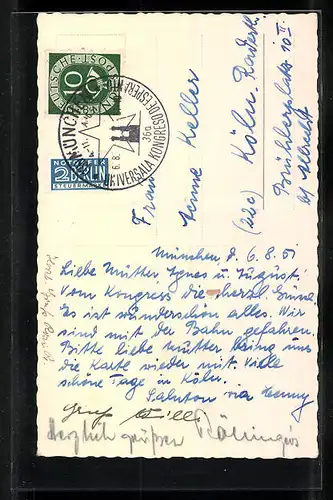 DEUTSCHE POST
10
MÜNCHEN
36a UNIVERSALA KONGRESO DE ESPERANTO
6.8.
NOTOPFER
2 BERLIN
STEUERMARKE
Frau
Keller
(22c) Köln
München d. 6.8.51
Liebe Mutter Agnes u. August!
Vom Kongress die herzl. Grüße.
Es ist wunderschön alles. Wir
sind mit der Bahn gefahren.
Bitte liebe Mutter bring uns
die Karte wieder mit. Viele
schöne Tage in Köln.
Saluton via Henny
Willi
Herzlich grüßen